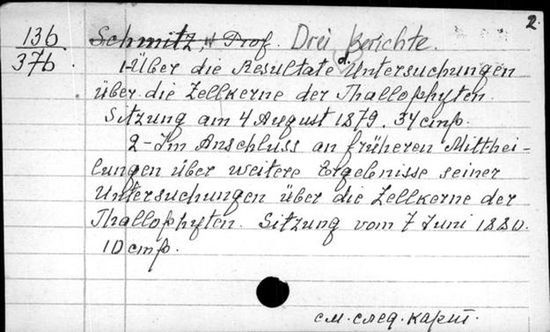 2.
136
37б.
Schmitz, Prof. Drei Berichte.
1-Über die Resultate d. Untersuchungen
über die Zellkerne der Thallophyten.
Sitzung am 4 August 1879. 34 стр.
2-Im Anschluss an früheren Mitthei-
lungen über weitere Ergebnisse seiner
Untersuchungen über die Zellkerne der
Thallophyten. Sitzung vom 7 Juni 1880.
10 стр.
см. след. карт.